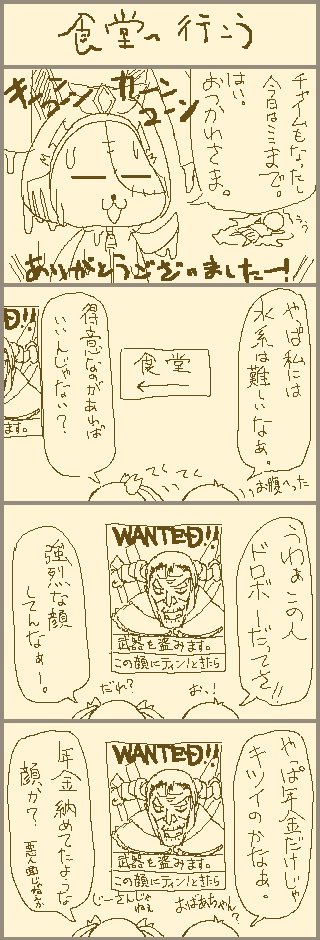 食堂へ行こう
キーンコーン
カーンコーン
チャイムもなったし
今日はここまで。
はい。
おつかれさま。
ありがとうございましたー!
やっぱ私には
水系は難しいなぁ。
得意なのがあれば
いいんじゃない?
食堂
お腹へった
てくてく
うわぁこの人
ドロボーだってさ!!
強烈な顔
してんなぁー。
WANTED!!
武器を盗みます。
この顔にティン!ときたら
だれ?
おぉ!
やっぱ年金だけじゃ
キツイのかなぁ。
年金納めてたような
顔か?
WANTED!!
武器を盗みます。
この顔にティン!ときたら
じーさんじゃねぇ
おばあちゃん?